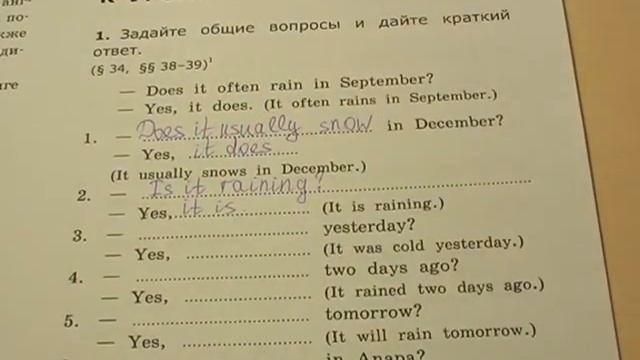 по-
кже
ди-
1. Задайте общие вопросы и дайте краткий
ответ.
(§ 34, §§ 38–39)¹
— Does it often rain in September?
— Yes, it does. (It often rains in September.)
1. — Does it usually snow in December?
— Yes, it does
(It usually snows in December.)
2. — Is it raining?
— Yes, it is (It is raining.)
3. — yesterday?
— Yes, (It was cold yesterday.)
4. — two days ago?
— Yes, (It rained two days ago.)
5. — tomorrow?
— Yes, (It will rain tomorrow.)
in Anapa?